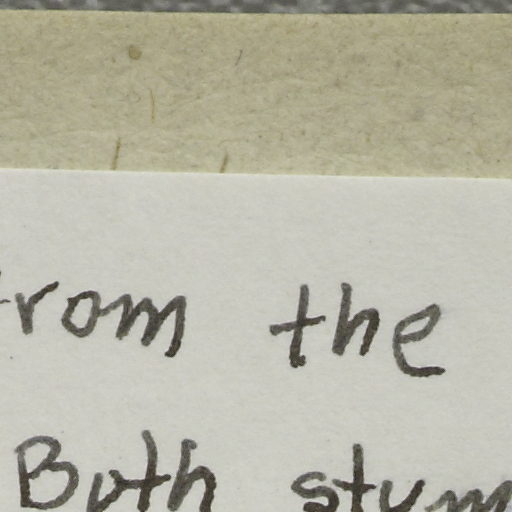 from the
Both stum